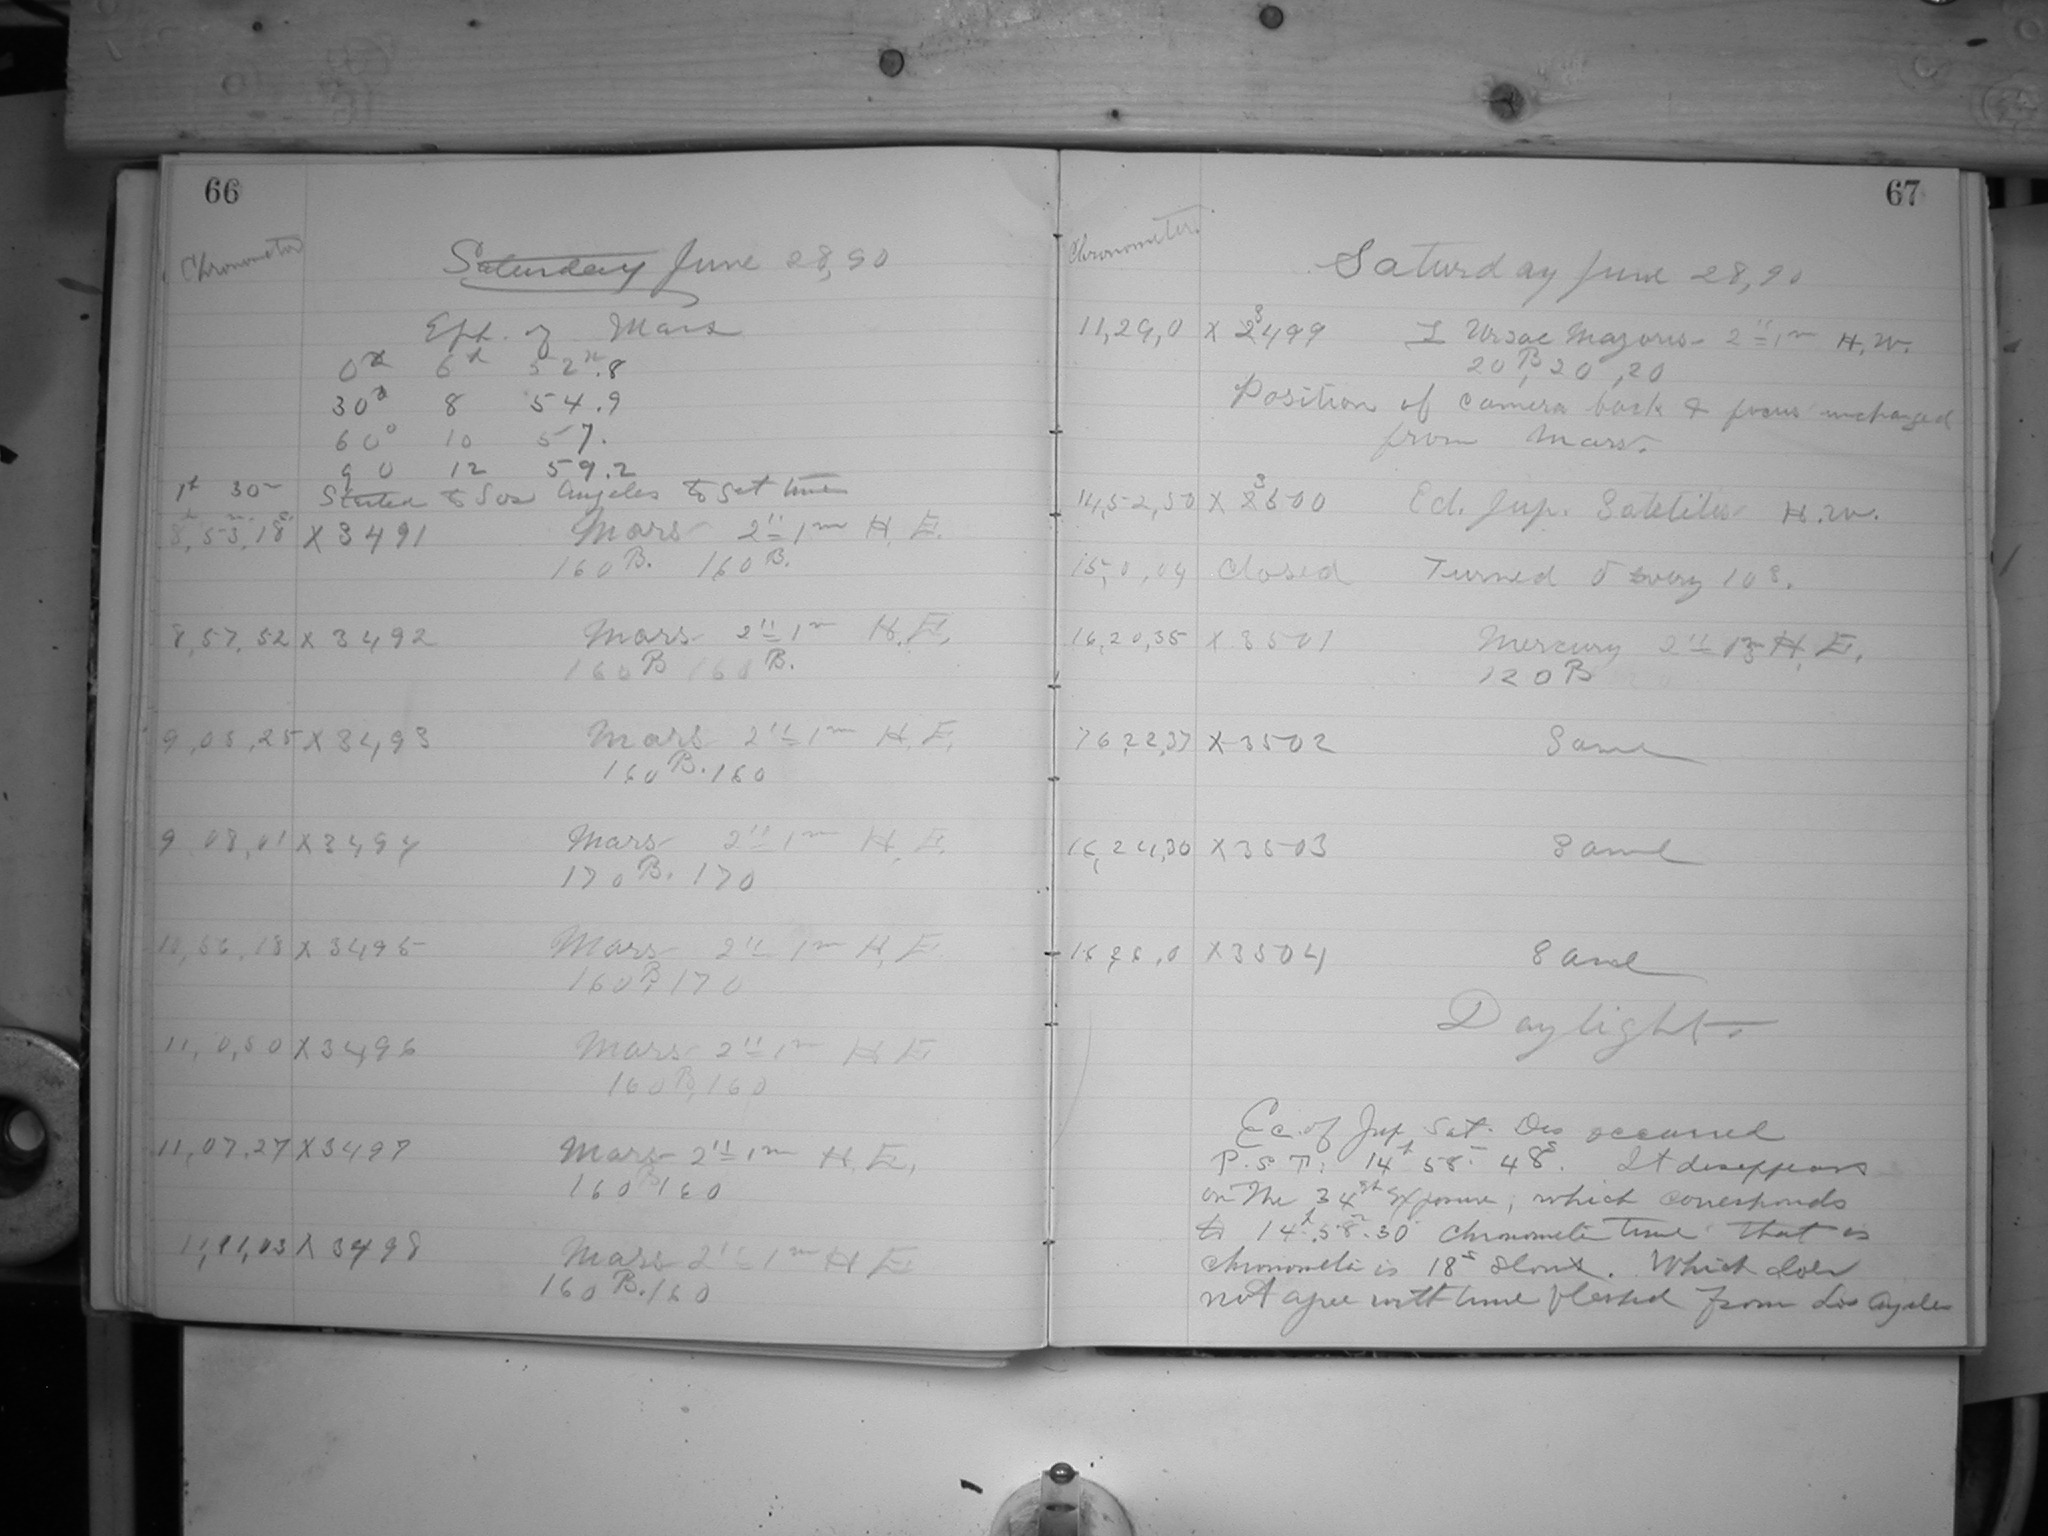 66
Chronometer
Saturday June 28, 90
Eph. of Mars
0° 6h 52m.8
30° 8 54.9
60° 10 57.
90 12 59.2
1h 30m Started to Los Angeles to Set time
8h, 53m, 18s X 3491 Mars 2" 1m H. E.
160 B. 160 B.
8, 57, 52 X 3492 Mars 2" 1m H. E.
160 B 160 B.
9, 05, 25 X 3493 Mars 2" 1m H. E.
160 B. 160
9 08, 01 X 3494 Mars 2" 1m H. E.
170 B. 170
10, 56, 18 X 3495 Mars 2" 1m H. E
160 B, 170
11, 0, 50 X 3496 Mars 2" 1m H E
160 B, 160
11, 07, 27 X 3497 Mars 2" 1m H. E.
160 B 160
11, 11, 03 X 3498 Mars 2" 1m H E
160 B. 160
67
Chronometer
Saturday June 28, 90
11, 29, 0 X 3499 Ursae Majoris 2" 1m H. W.
20 B, 20, 20
Position of camera back & focus unchanged
from Mars.
14, 52, 50 X 3500 Ecl. Jup. Satelites H. W.
15, 0, 04 Closed Turned every 10 s.
16, 20, 35 X 3501 Mercury 2" H. E.
120 B
16, 22, 37 X 3502 Same
16, 24, 30 X 3503 Same
16, 26, 0 X 3504 Same
Daylight
Ec. of Jup. Sat. Dis occurred
P. S. T. 14h 58m 48s. It disappears
on the 34th exposure, which corresponds
to 14h. 58m. 30 Chronometer time that is
chronometer is 18s slow. Which does
not agree with time flashed from Los Angeles